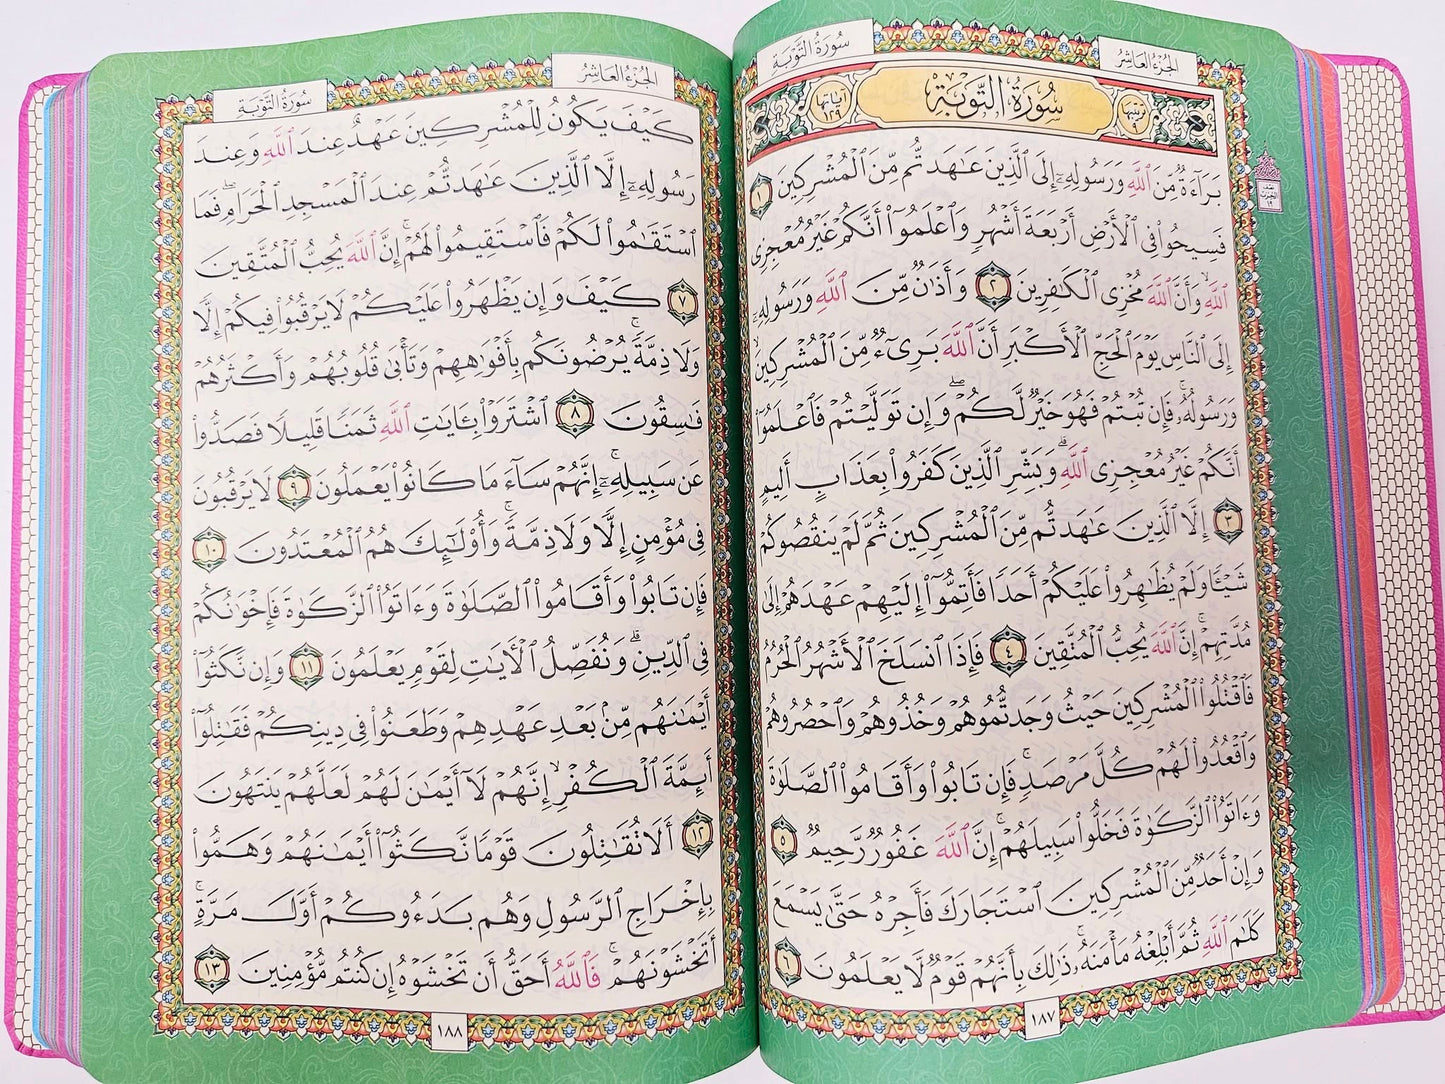 سُورَةُ التَّوْبَةِ
الجُزْءُ العَاشِرُ
ترتيبها ٩
سُورَةُ التَّوْبَةِ
آياتها ١٢٩
بَرَآءَةٌ مِّنَ ٱللَّهِ وَرَسُولِهِۦٓ إِلَى ٱلَّذِينَ عَٰهَدتُّم مِّنَ ٱلْمُشْرِكِينَ ١
فَسِيحُوا۟ فِى ٱلْأَرْضِ أَرْبَعَةَ أَشْهُرٍ وَٱعْلَمُوٓا۟ أَنَّكُمْ غَيْرُ مُعْجِزِى
ٱللَّهِ ۙ وَأَنَّ ٱللَّهَ مُخْزِى ٱلْكَٰفِرِينَ ٢ وَأَذَٰنٌ مِّنَ ٱللَّهِ وَرَسُولِهِۦٓ
إِلَى ٱلنَّاسِ يَوْمَ ٱلْحَجِّ ٱلْأَكْبَرِ أَنَّ ٱللَّهَ بَرِىٓءٌ مِّنَ ٱلْمُشْرِكِينَ ۙ
وَرَسُولُهُۥ ۚ فَإِن تُبْتُمْ فَهُوَ خَيْرٌ لَّكُمْ ۖ وَإِن تَوَلَّيْتُمْ فَٱعْلَمُوٓا۟
أَنَّكُمْ غَيْرُ مُعْجِزِى ٱللَّهِ ۗ وَبَشِّرِ ٱلَّذِينَ كَفَرُوا۟ بِعَذَابٍ أَلِيمٍ
٣ إِلَّا ٱلَّذِينَ عَٰهَدتُّم مِّنَ ٱلْمُشْرِكِينَ ثُمَّ لَمْ يَنقُصُوكُمْ
شَيْـًٔا وَلَمْ يُظَٰهِرُوا۟ عَلَيْكُمْ أَحَدًا فَأَتِمُّوٓا۟ إِلَيْهِمْ عَهْدَهُمْ إِلَىٰ
مُدَّتِهِمْ ۚ إِنَّ ٱللَّهَ يُحِبُّ ٱلْمُتَّقِينَ ٤ فَإِذَا ٱنسَلَخَ ٱلْأَشْهُرُ ٱلْحُرُمُ
فَٱقْتُلُوا۟ ٱلْمُشْرِكِينَ حَيْثُ وَجَدتُّمُوهُمْ وَخُذُوهُمْ وَٱحْصُرُوهُمْ
وَٱقْعُدُوا۟ لَهُمْ كُلَّ مَرْصَدٍ ۚ فَإِن تَابُوا۟ وَأَقَامُوا۟ ٱلصَّلَوٰةَ
وَءَاتَوُا۟ ٱلزَّكَوٰةَ فَخَلُّوا۟ سَبِيلَهُمْ ۚ إِنَّ ٱللَّهَ غَفُورٌ رَّحِيمٌ ٥
وَإِنْ أَحَدٌ مِّنَ ٱلْمُشْرِكِينَ ٱسْتَجَارَكَ فَأَجِرْهُ حَتَّىٰ يَسْمَعَ
كَلَٰمَ ٱللَّهِ ثُمَّ أَبْلِغْهُ مَأْمَنَهُۥ ۚ ذَٰلِكَ بِأَنَّهُمْ قَوْمٌ لَّا يَعْلَمُونَ ٦
نصف
الحزب
١٩
١٨٧
سُورَةُ التَّوْبَةِ
الجُزْءُ العَاشِرُ
كَيْفَ يَكُونُ لِلْمُشْرِكِينَ عَهْدٌ عِندَ ٱللَّهِ وَعِندَ
رَسُولِهِۦٓ إِلَّا ٱلَّذِينَ عَٰهَدتُّمْ عِندَ ٱلْمَسْجِدِ ٱلْحَرَامِ ۖ فَمَا
ٱسْتَقَٰمُوا۟ لَكُمْ فَٱسْتَقِيمُوا۟ لَهُمْ ۚ إِنَّ ٱللَّهَ يُحِبُّ ٱلْمُتَّقِينَ
٧ كَيْفَ وَإِن يَظْهَرُوا۟ عَلَيْكُمْ لَا يَرْقُبُوا۟ فِيكُمْ إِلًّا
وَلَا ذِمَّةً ۚ يُرْضُونَكُم بِأَفْوَٰهِهِمْ وَتَأْبَىٰ قُلُوبُهُمْ وَأَكْثَرُهُمْ
فَٰسِقُونَ ٨ ٱشْتَرَوْا۟ بِـَٔايَٰتِ ٱللَّهِ ثَمَنًا قَلِيلًا فَصَدُّوا۟
عَن سَبِيلِهِۦٓ ۚ إِنَّهُمْ سَآءَ مَا كَانُوا۟ يَعْمَلُونَ ٩ لَا يَرْقُبُونَ
فِى مُؤْمِنٍ إِلًّا وَلَا ذِمَّةً ۚ وَأُو۟لَٰٓئِكَ هُمُ ٱلْمُعْتَدُونَ ١٠
فَإِن تَابُوا۟ وَأَقَامُوا۟ ٱلصَّلَوٰةَ وَءَاتَوُا۟ ٱلزَّكَوٰةَ فَإِخْوَٰنُكُمْ
فِى ٱلدِّينِ ۗ وَنُفَصِّلُ ٱلْـَٔايَٰتِ لِقَوْمٍ يَعْلَمُونَ ١١ وَإِن نَّكَثُوٓا۟
أَيْمَٰنَهُم مِّنۢ بَعْدِ عَهْدِهِمْ وَطَعَنُوا۟ فِى دِينِكُمْ فَقَٰتِلُوٓا۟
أَئِمَّةَ ٱلْكُفْرِ ۙ إِنَّهُمْ لَآ أَيْمَٰنَ لَهُمْ لَعَلَّهُمْ يَنتَهُونَ
١٢ أَلَا تُقَٰتِلُونَ قَوْمًا نَّكَثُوٓا۟ أَيْمَٰنَهُمْ وَهَمُّوا۟
بِإِخْرَاجِ ٱلرَّسُولِ وَهُم بَدَءُوكُمْ أَوَّلَ مَرَّةٍ ۚ
أَتَخْشَوْنَهُمْ ۚ فَٱللَّهُ أَحَقُّ أَن تَخْشَوْهُ إِن كُنتُم مُّؤْمِنِينَ ١٣
١٨٨